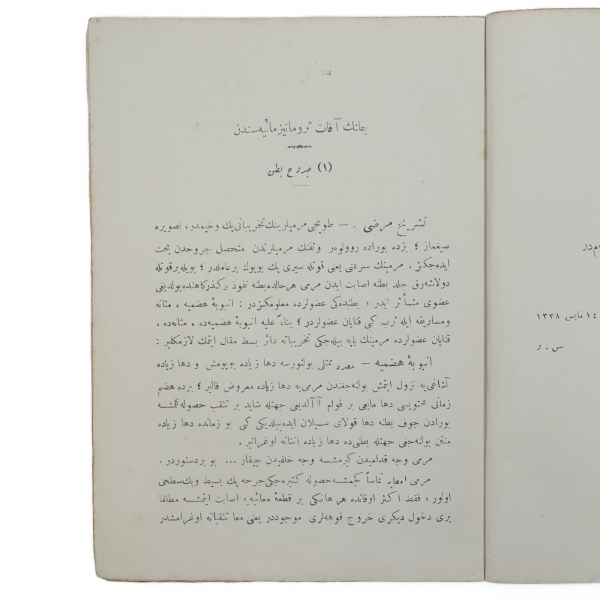 بطنك آفات تروماتيزمائيه سندن
(١) جروح بطن
تشريح مرضى . — طوپجى مرميلرينك تخريباتى پك وخيمدر، تصويره
صيغماز ؛ بزده بوراده روولور وتفنك مرميلرندن متحصل جروحدن بحث
ايده‌جكز . مرمينك سرعتى يعنى قوتله سيرى پك بويوك برعاملدر ؛ بويله برقوتله
دولاشه‌رق جلد بطنه اصابت ايدن مرمى هرحالده بطنه نفوذ
عضوى متأثر ايدر ؛ بطنده‌كى عضولرده معلومكزدر : انبوبهٔ هضميه ، مثانه
ومساريقه ايله ترب كبى قنايان عضولردر ؛ بناءً عليه انبوبهٔ هضميه‌ده ، مثانه‌ده ،
قنايان عضولرده مرمينك ياپه بيله‌جكى تخريباته دائر بسط مقال ايتمك لازمكلير :
انبوبهٔ هضميه — معده ممتلى بولنورسه دها زياده بويومش و دها زياده
آشاغى‌يه نزول ايتمش بولنه‌جغندن مرمى‌يه دها زياده معروض قالير ؛ برده هضم
زمانى محتويسى دها مايعى بر قوام آلديغى جهتله شايد بر تثقب حصوله كلمشسه
بورادن جوف بطنه دها قولاى سيلان ايده‌بيلديكى كبى بو زمانده دها زياده
متفن بولنه‌جغى جهتله بطنى‌ده دها زياده انتانه اوغراتير .
مرمى وجه قداميدن كيرمشسه وجه خلفيدن چيقار ... بو بردستوردر .
مرمى امعايه تماساً كچمشسه حصوله كتيره‌جكى جرحه پك بسيط وپك سطحى
اولور ؛ فقط اكثر اوقاتده هر هانكى بر قطعهٔ معائيه‌يه اصابت ايتمشسه مطلقا
برى دخول ديكرى خروج فوهه‌لرى موجوددر يعنى معا تثقباته اوغرامشدر
م‌در
١٤ مايس ١٣٣٨
س . و